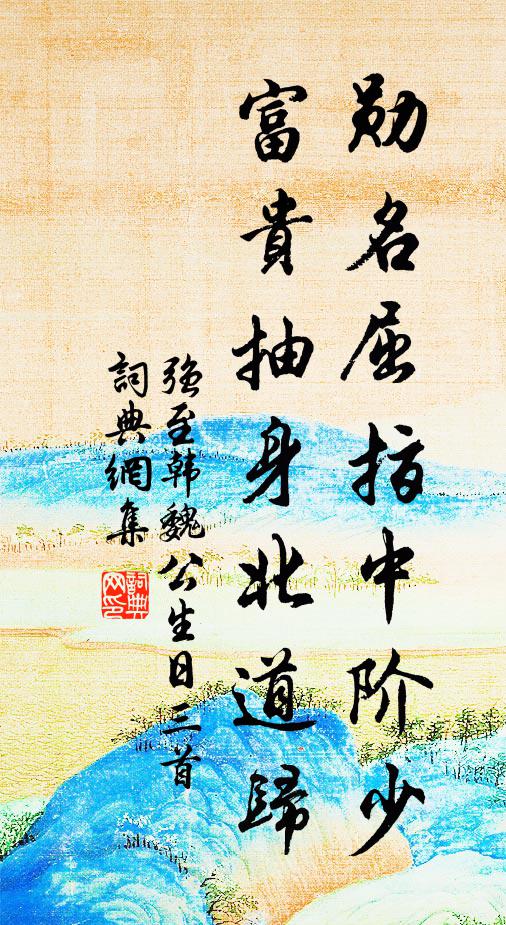 勋名屈指中阶少
富貴抽身北道歸
强至韩魏公生日三首
詞典網集
詞典网印